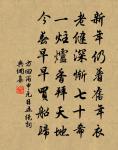 新年仍着舊年衣
老健深慚七十希
一炷爐香拜天地
今早早買船歸
方回丙申元日五絕詞
典網集